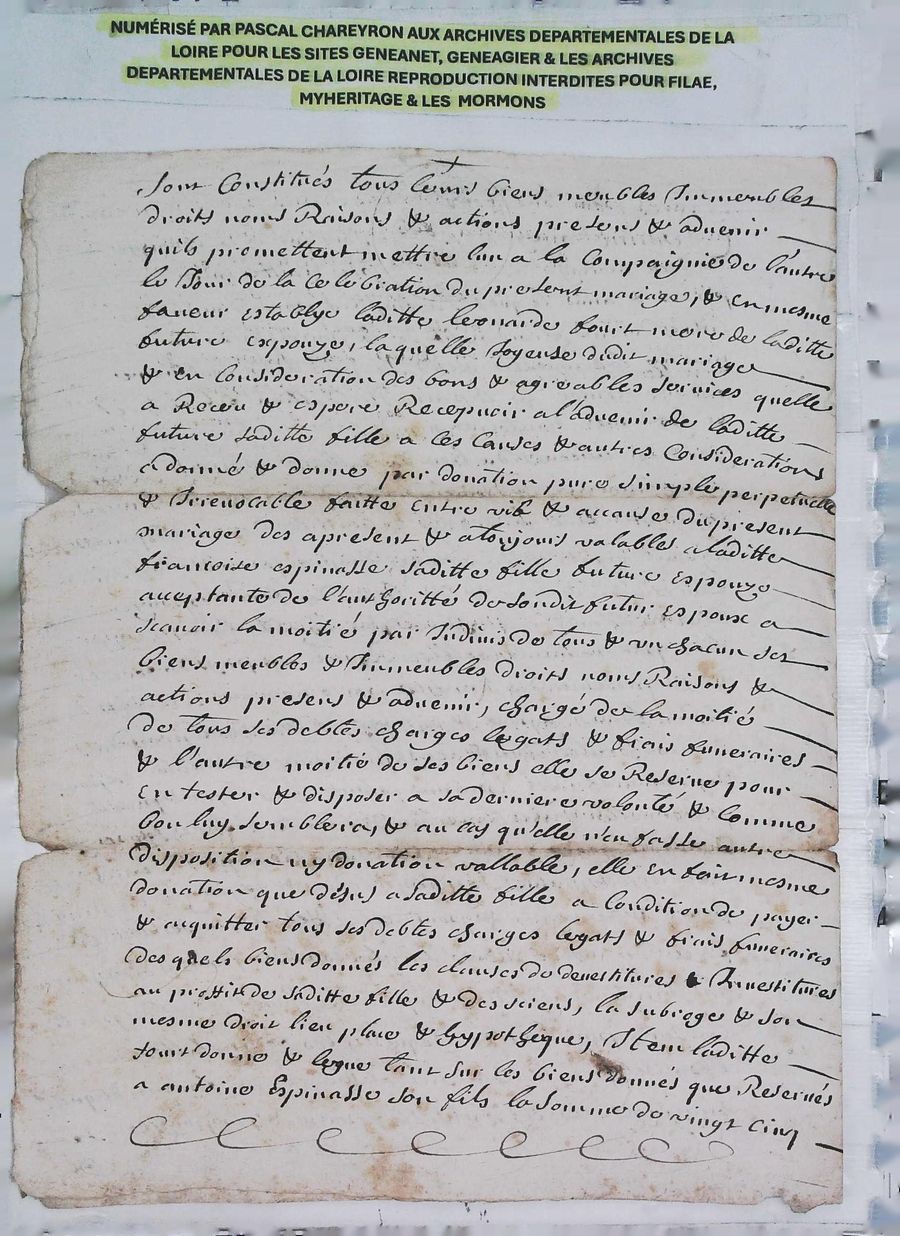 NUMÉRISÉ PAR PASCAL CHAREYRON AUX ARCHIVES DEPARTEMENTALES DE LA
LOIRE POUR LES SITES GENEANET, GENEAGIER & LES ARCHIVES
DEPARTEMENTALES DE LA LOIRE REPRODUCTION INTERDITES POUR FILAE,
MYHERITAGE & LES MORMONS
Sont Constitués tous leurs biens meubles Immeubles
droits noms Raisons & actions presens & aduenir
quils promettent mettre lun a la Compaignie de l'autre
le Jour de la Celebration du present mariage, & en mesme
faueur establye laditte leonarde fourt mere de laditte
future espouze, laquelle Joyeuse dudit mariage
& en Consideration des bons & agreables seruices quelle
a Receu & espere Recepuoir a l'aduenir de laditte
future saditte fille a ces Causes & autres Considerations
a donné & donne par donation pure simple perpetuelle
& Irreuocable faitte entre vif & a cause du present
mariage des apresent & a tousjours valables a laditte
francoise espinasse saditte fille future espouze
acceptante de l'authoritté de sondit futur espoux a
scauoir la moitié par Indiuis de tous & vn chacun ses
biens meubles & Immeubles droits noms Raisons &
actions presens & aduenir, chargé de la moitié
de tous ses debtes charges legats & frais funeraires
& l'autre moitié de ses biens elle se Reserue pour
en tester & disposer a sa derniere volonté & Comme
bon luy semblera, & au cas qu'elle n'en fasse autre
disposition ny donation vallable, elle en fait mesme
donation que désus a saditte fille a Condition de payer
& acquitter tous ses debtes charges legats & frais funeraires
des quels biens donnés les clauses de deuestitures & Inuestitures
au proffit de saditte fille & des siens, la subroge & son
mesme droit lieu place & hypotheque, Item laditte
fourt donne & legue tant sur les biens donnés que Reserués
a antoine Espinasse son fils la somme de vingt cinq